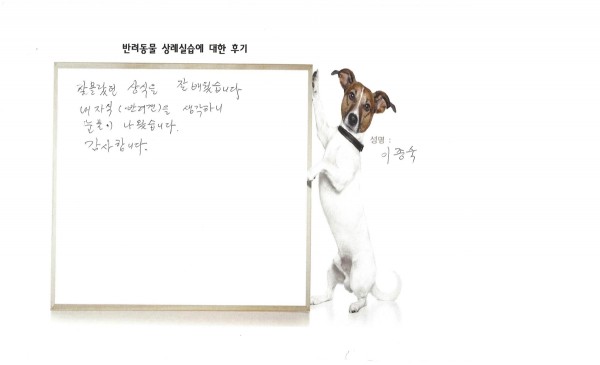 반려동물 상례실습에 대한 후기
잘몰랐던 상식을 잘 배웠습니다
내 자식 (반려견)을 생각하니
눈물이 나왔습니다.
감사합니다.
성명 :
이종숙